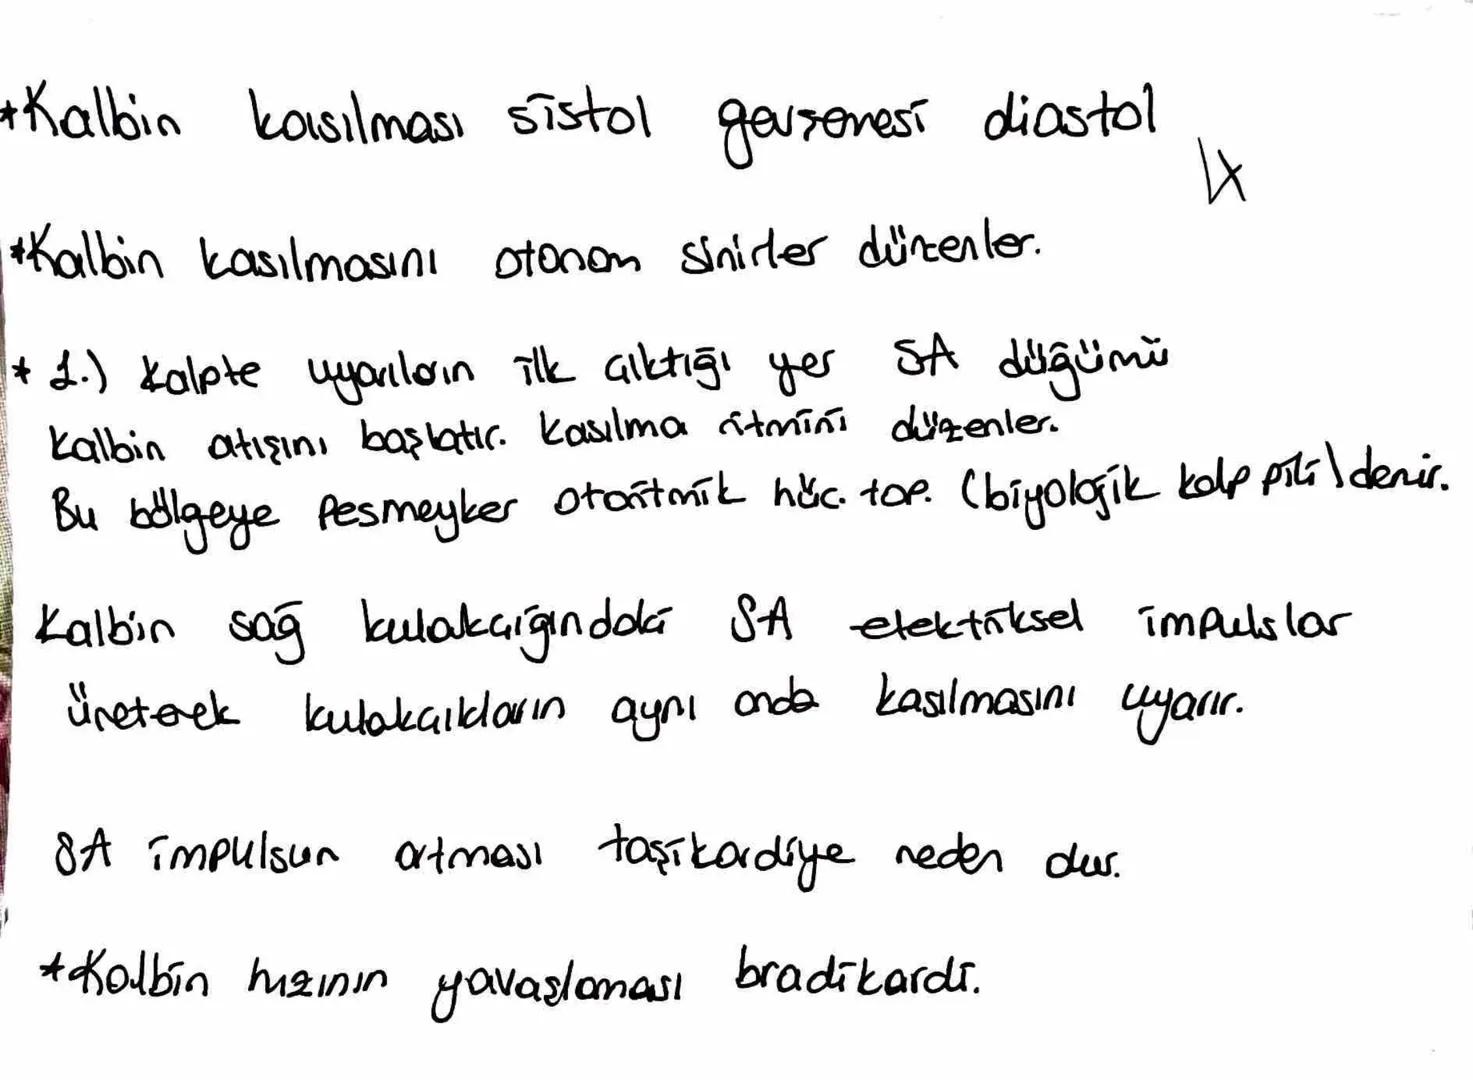 *Kalbin kasılması sistol gevşemesi diastol
*Kalbin kasılmasını otonom sinirler düzenler.
* 1.) Kalpte uyarıların ilk çıktığı yer SA düğümü
Kalbin atışını başlatır. Kasılma ritmini düzenler.
Bu bölgeye Pesmeyker otoritmik hüc. top. (biyolojik kalp pili) denir.
Kalbin sağ kulakçığındaki SA elektriksel impulslar
üreterek kulakçıkların aynı anda kasılmasını uyarır.
SA impulsun artması taşikardiye neden olur.
*Kalbin hızının yavaşlaması bradikardi.